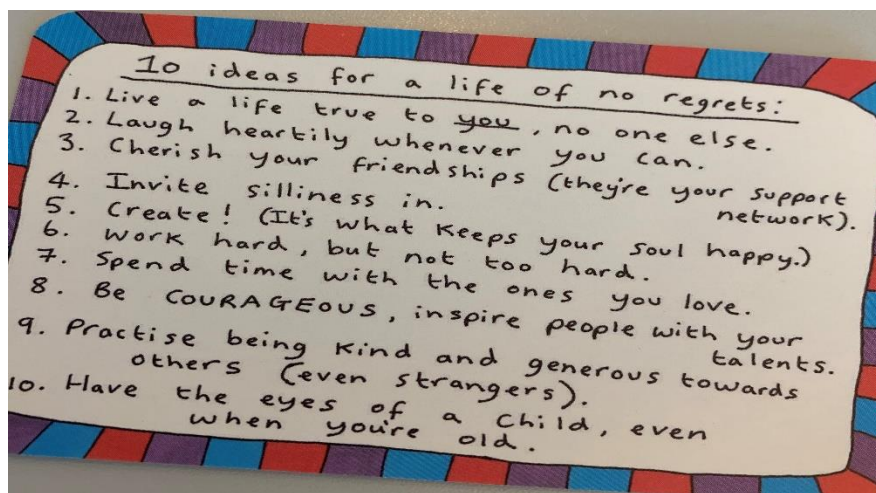 10 ideas for a life of no regrets:
1. Live a life true to you, no one else.
2. Laugh heartily whenever you can.
3. Cherish your friendships (they're your support
network).
4. Invite silliness in.
5. Create! (It's what keeps your soul happy.)
6. Work hard, but not too hard.
7. Spend time with the ones you love.
8. Be COURAGEOUS, inspire people with your
talents.
9. Practise being kind and generous towards
others (even strangers).
10. Have the eyes of a child, even
when you're old.